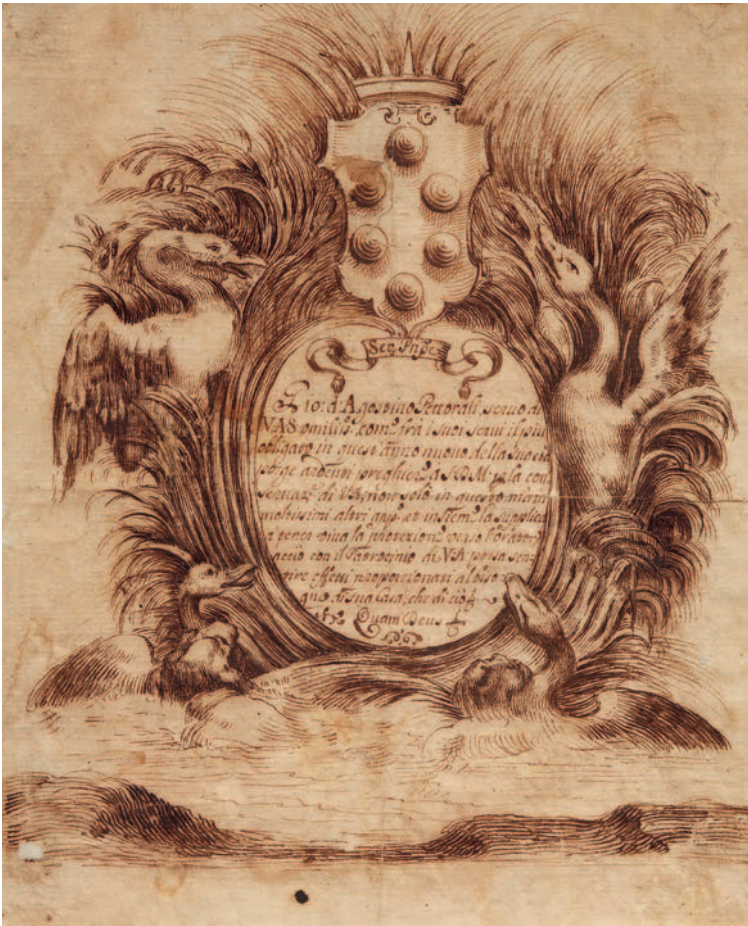 Ser. Pnpe
Gio: d'Agostino Pettorali, seruo di
VAS omiliss. com. frà i suoi serui il più
obligato in quest'anno nuouo
porge ardenti preghiere à S.D.M. p la con
seruaz. di VA non solo in questo mà in
moltissimi altri anj. et insiem. la supplica
à tener uiua la protezione uerso
acciò con il Patrocinio di VA possa sen
tire effetti proporzionati al
di sua Casa, che di ciò
Quam Deus